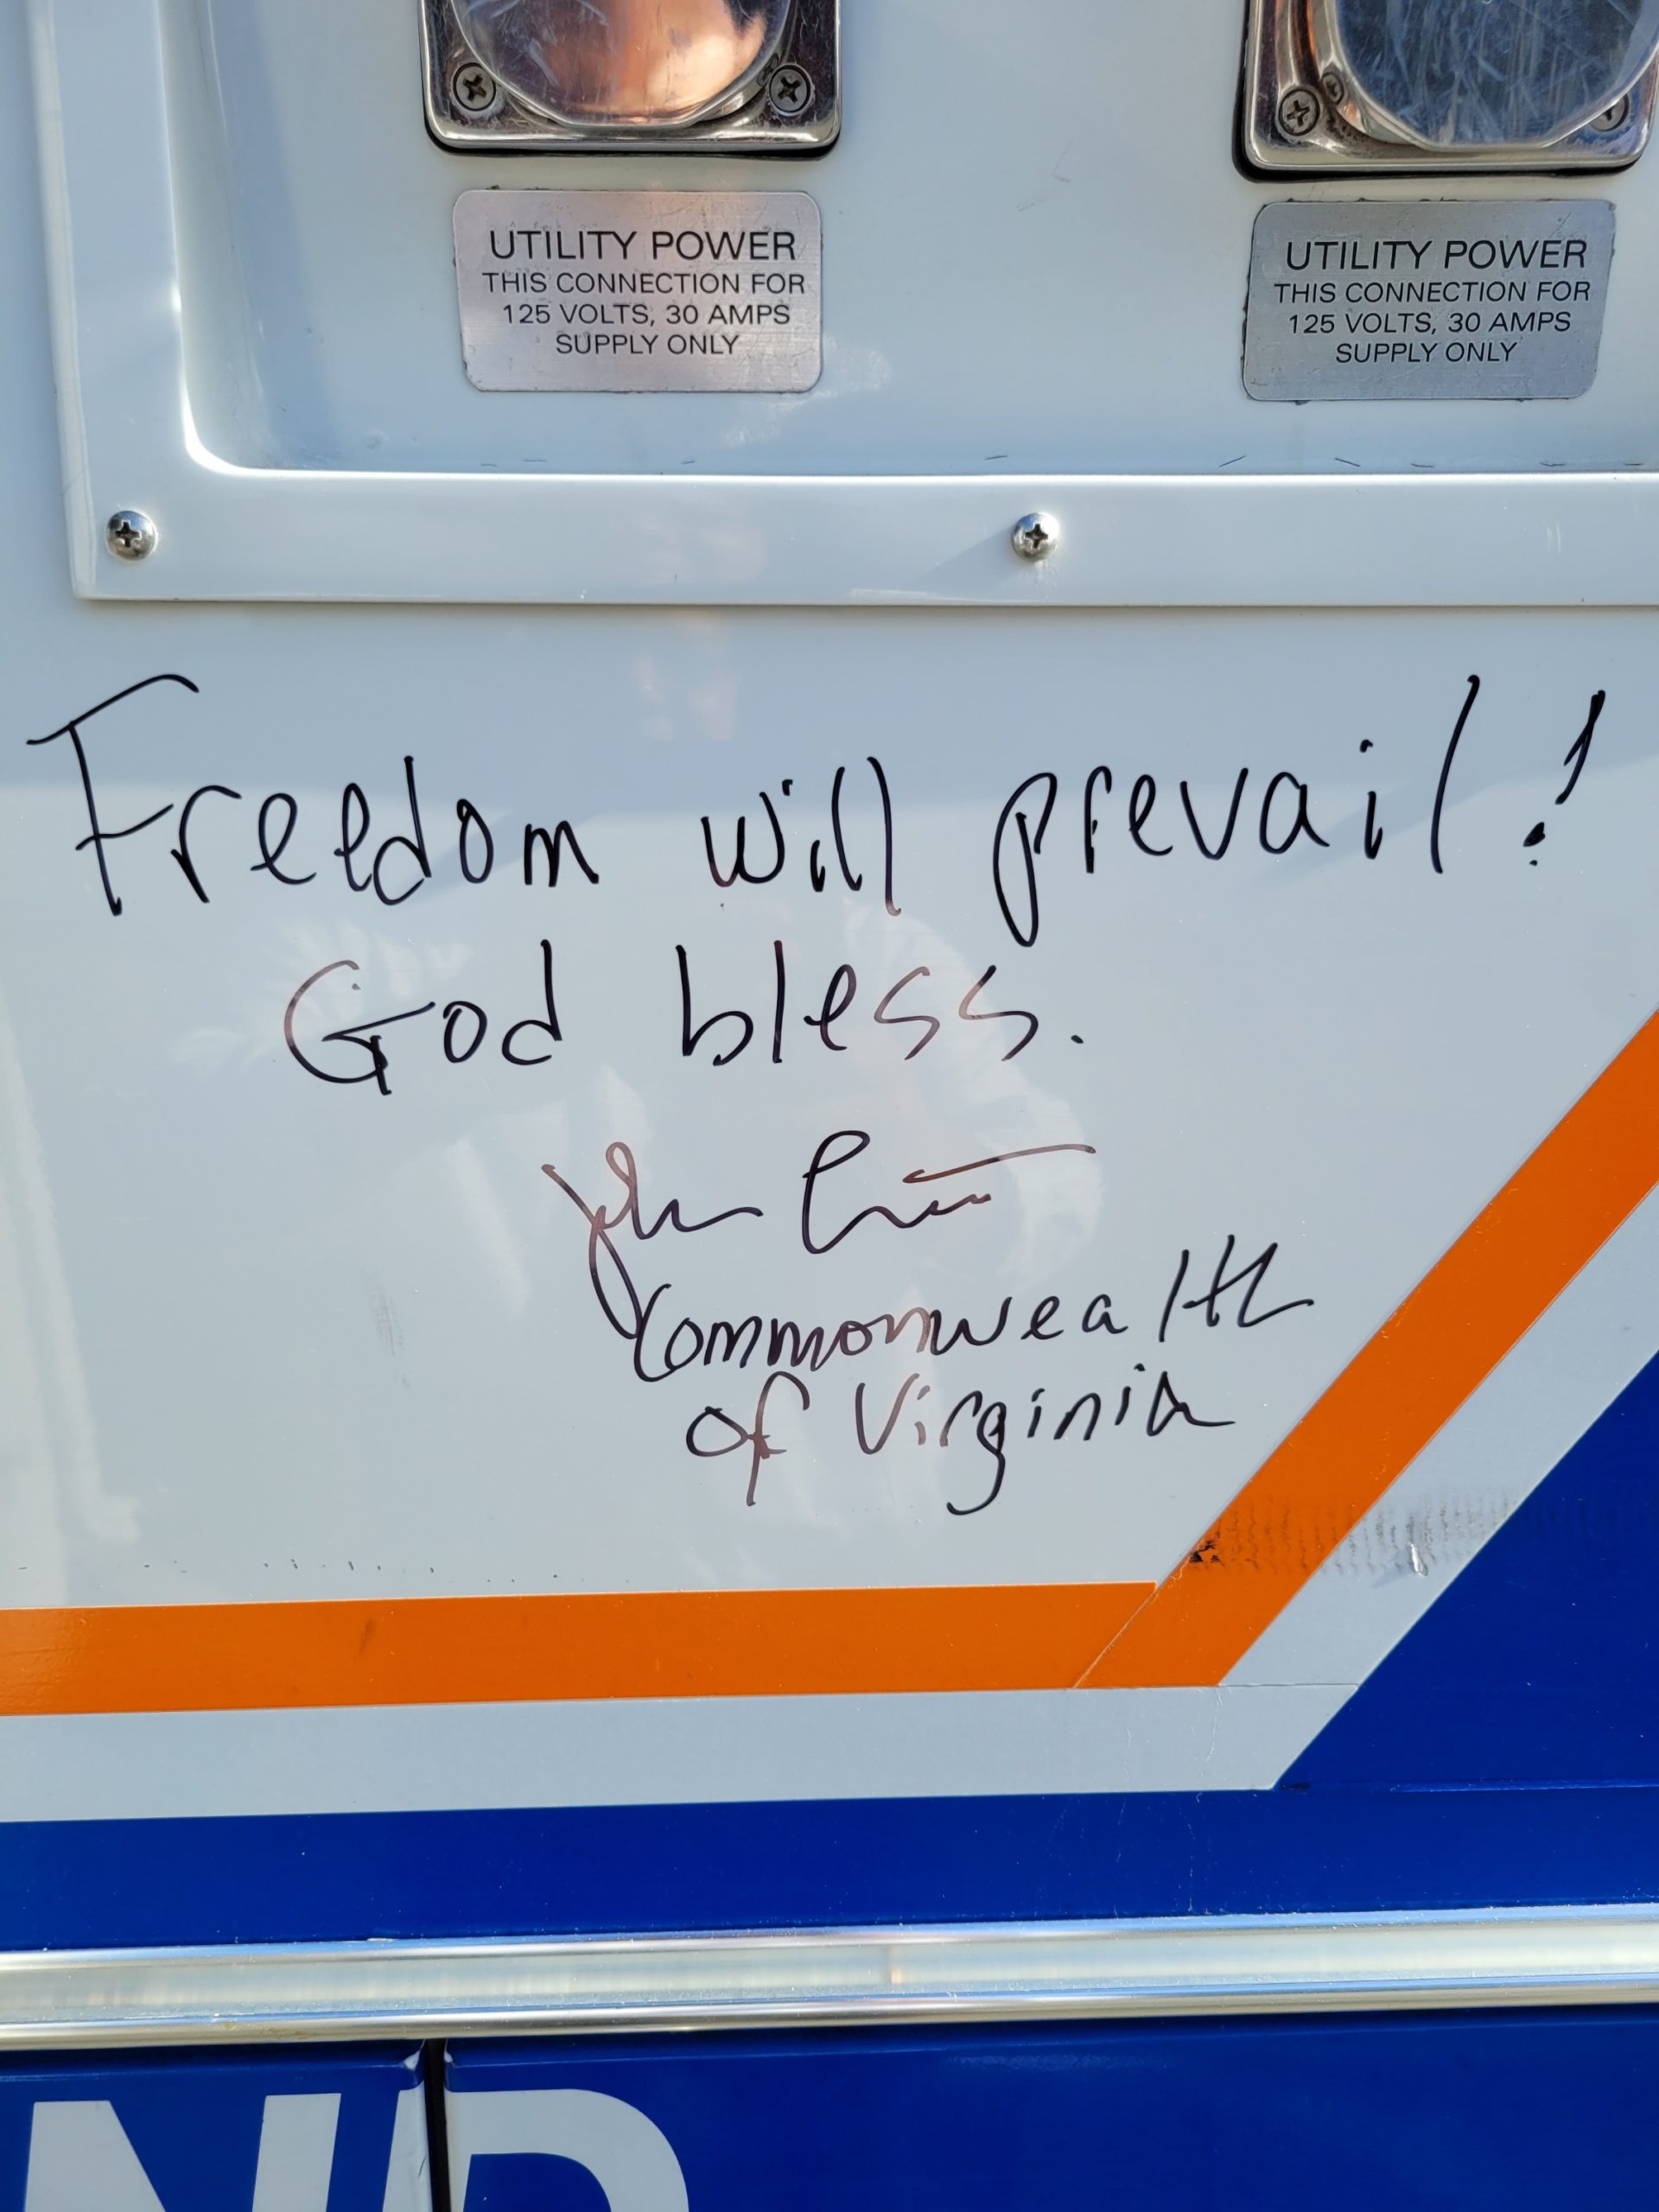 UTILITY POWER
THIS CONNECTION FOR
125 VOLTS, 30 AMPS
SUPPLY ONLY
UTILITY POWER
THIS CONNECTION FOR
125 VOLTS, 30 AMPS
SUPPLY ONLY
Freedom will prevail!
God bless.
John
Commonwealth
of Virginia
ND